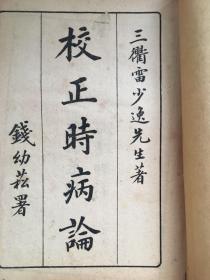 三衢雷少逸先生著
校正時病論
錢幼菘署